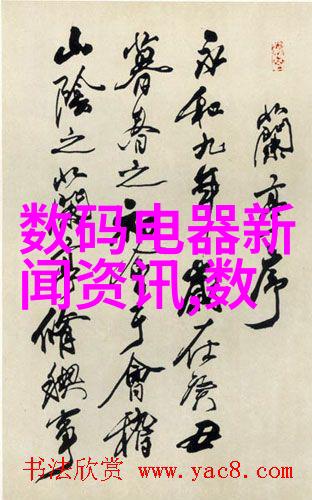 蘭亭序
永和九年歲在癸丑
暮春之初會于會稽
山陰之蘭亭脩禊事
数码电器新
闻资讯,数
书法欣赏 www.yac8.com